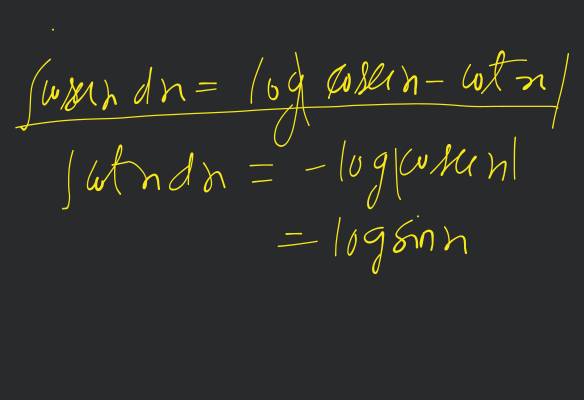 ∫cosecx dx = log|cosecx - cotx|
∫cotxdx = -log|cosecx|
= logsinx